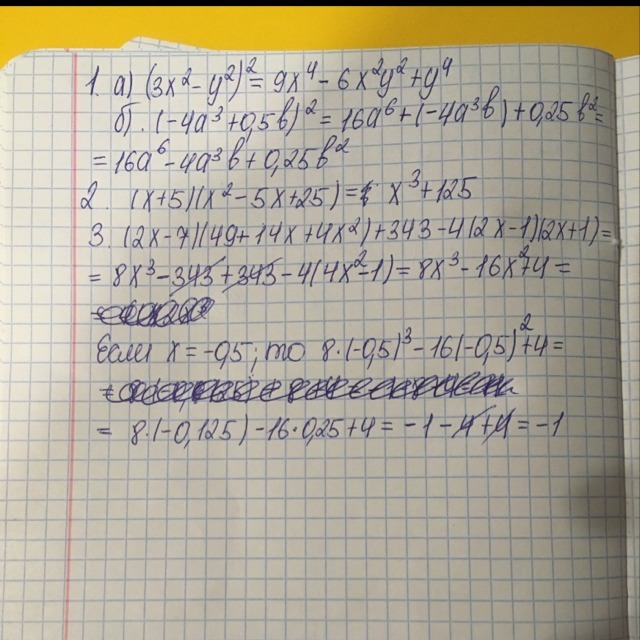 1. а) (3x² - y²)² = 9x⁴ - 6x²y² + y⁴
б). (-4a³ + 0,5b)² = 16a⁶ + (-4a³b) + 0,25b² =
= 16a⁶ - 4a³b + 0,25b²
2. (x+5)(x² - 5x + 25) = x³ + 125
3. (2x-7)(49 + 14x + 4x²) + 343 - 4(2x-1)(2x+1) =
= 8x³ - 343 + 343 - 4(4x² - 1) = 8x³ - 16x² + 4 =
Если x = -0,5; то 8·(-0,5)³ - 16(-0,5)² + 4 =
= 8·(-0,125) - 16·0,25 + 4 = -1 - 4 + 4 = -1